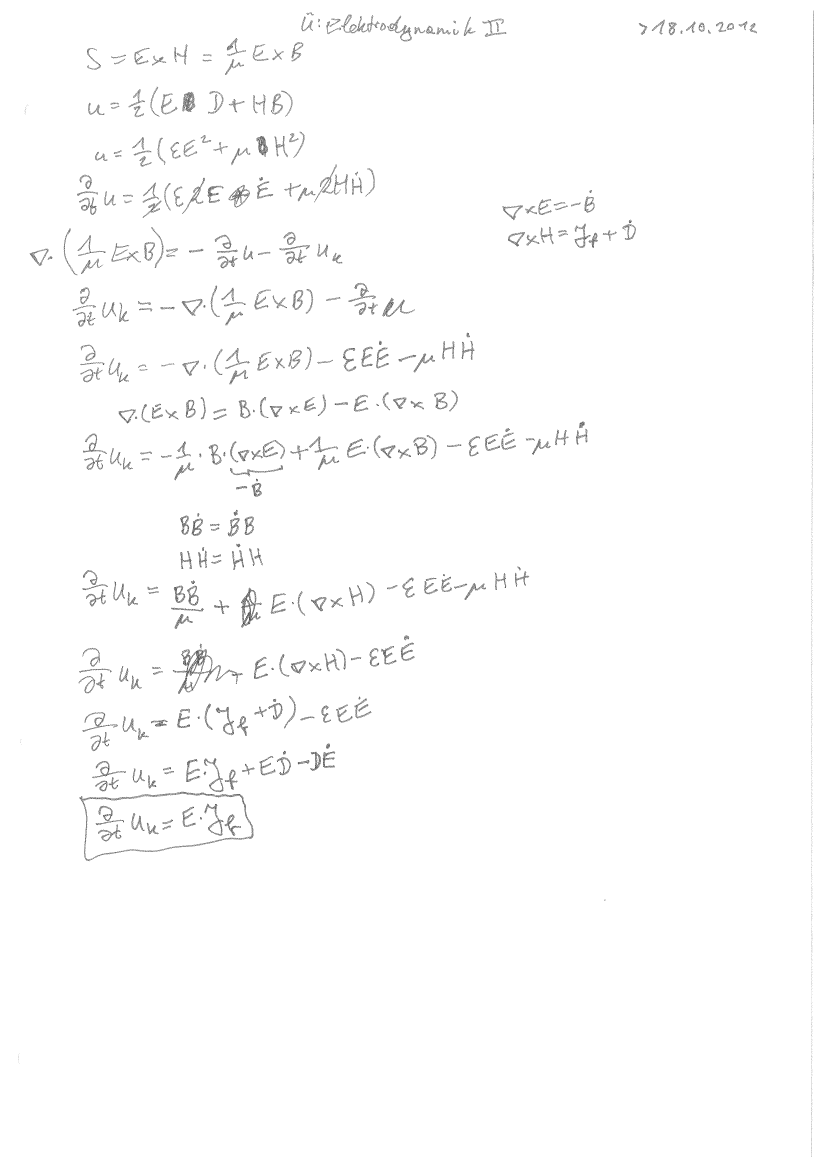 Ü: Elektrodynamik II >18.10.2012
S = E×H = 1/μ E×B
u = 1/2 (E D + HB)
u = 1/2 (εE² + μ H²)
∂/∂t u = 1/2 (ε2E Ė + μ2HḢ)
∇×E = -Ḃ
∇×H = J_f + Ḋ
∇·(1/μ E×B) = - ∂/∂t u - ∂/∂t u_k
∂/∂t u_k = - ∇·(1/μ E×B) - ∂/∂t u
∂/∂t u_k = - ∇·(1/μ E×B) - εEĖ - μHḢ
∇·(E×B) = B·(∇×E) - E·(∇×B)
∂/∂t u_k = - 1/μ · B·(∇×E) + 1/μ E·(∇×B) - εEĖ - μHḢ
-Ḃ
BḂ = ḂB
HḢ = ḢH
∂/∂t u_k = BḂ/μ + E·(∇×H) - εEĖ - μHḢ
∂/∂t u_k = E·(∇×H) - εEĖ
∂/∂t u_k = E·(J_f + Ḋ) - εEĖ
∂/∂t u_k = E·J_f + EḊ - DĖ
∂/∂t u_k = E·J_f